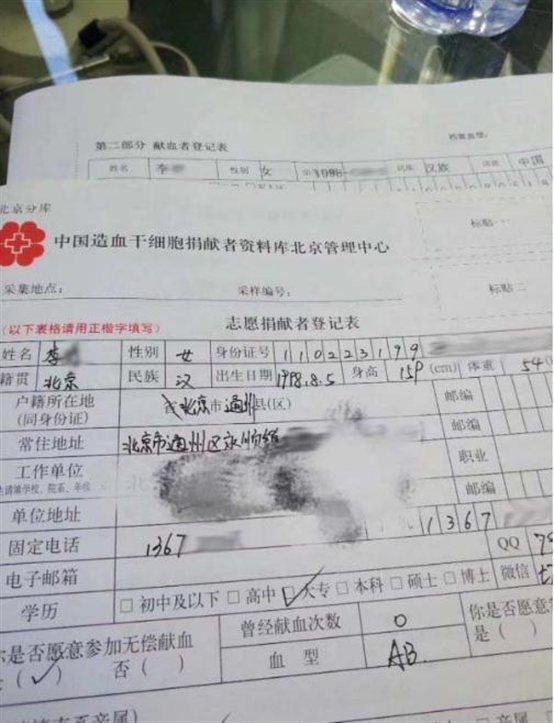 档案类型:
第二部分 献血者登记表
姓名 李 性别 女 1998 民族 汉族 国籍 中国
北京分库
中国造血干细胞捐献者资料库北京管理中心
标贴一
采集地点: 采样编号:
标贴二
(以下表格请用正楷字填写) 志愿捐献者登记表
姓名 李 性别 女 身份证号 110223199
籍贯 北京 民族 汉 出生日期 1998.8.5 身高 159 (cm) 体重 54
户籍所在地 省 北京 市 通州 县(区) 邮编
(同身份证)
常住地址 北京市通州区永顺 邮编
工作单位 职业
单位地址 邮编
固定电话 1367 1367
电子邮箱 QQ
学历 □初中及以下 □高中 ☑大专 □本科 □硕士 □博士 微信
你是否愿意参加无偿献血 曾经献血次数 0 你是否愿意
是(✓) 否( ) 血型 AB 是( )